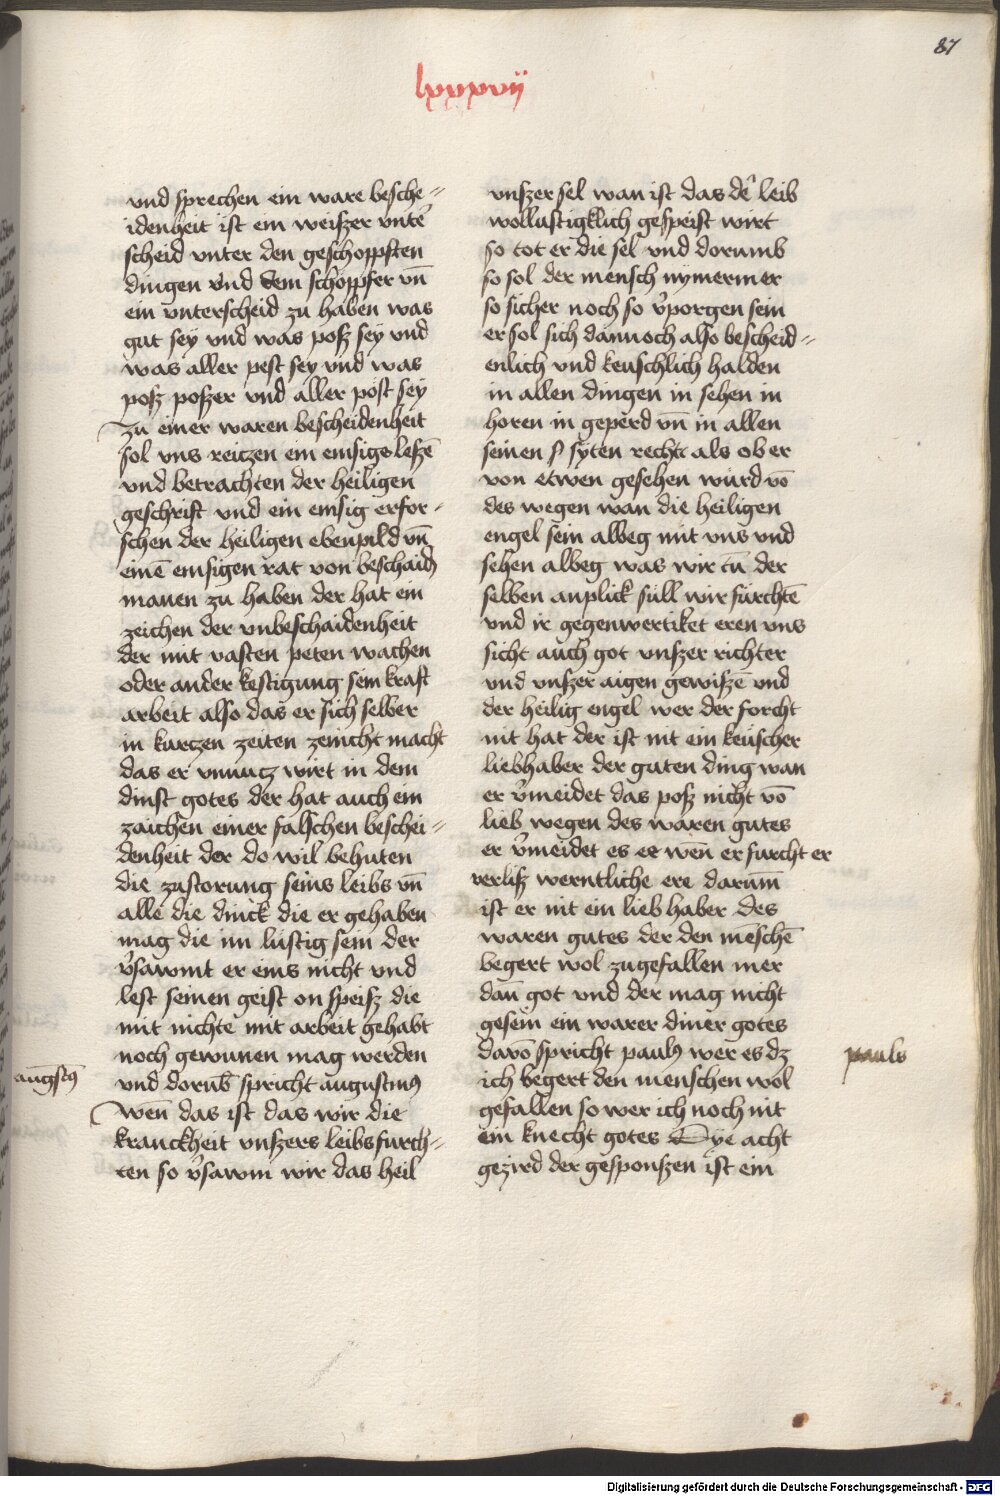 87
lxxxvij
und sprechen ein ware besche-
idenheit ist ein weiszer unte᷑
scheid unter den geschoppften
dingen und dem schöpffer un̄
ein unterscheid zu haben was
gut sey und was posz sey und
was aller pest sey und was
posz poszer und aller post sey
zu einer waren bescheidenheit
sol uns reitzen ein emsigs leszē
und betrachten der heiligen
geschrift und ein emsig erfor-
schen der heiligen ebenpild un̄
einē emsigen rat von beschaidn̄
manen zu haben der hat ein
zeichen der unbeschaidenheit
der mit vasten peten wachen
oder ander kestigung sein kraft
arbeit also das er sich selber
in kurczen zeiten zenicht macht
das er unnucz wirt in dem
dinst gotes der hat auch ein
zaichen einer falschen beschei-
denheit der do wil behuten
die zustorung seins leibs un̄
alle die dinck die er gehaben
mag die im lüstig sein der
v᷑sawmt er eins nicht und
lest seinen geist on speisz die
mit nichte mit arbeit gehabt
noch gewunen mag werden
augstꝰ
und dorūb spricht augustinꝰ
wen̄ das ist das wir die
kranckheit unszers leibs furch-
ten so v᷑sawm wir das heil
unszer sel wan ist das de᷑ leib
wollustigklich gespeist wirt
so tot er die sel und dorumb
so sol der mensch nymermer
so sicher noch so v᷑porgen sein
er sol sich dannoch also bescheid-
enlich und keuschlich halden
in allen dingen in sehen in
horen in geperd un̄ in allen
seinen syten recht als ob er
von etwen gesehen würd vō
des wegen wan die heiligen
engel sein alweg mit uns und
sehen alweg was wir tū der
selben anplick süll wir fürchtē
und ir gegenwertiket eren uns
sicht auch got unszer richter
und unszer aigen gewiszē und
der heilig engel wer der forcht
nit hat der ist nit ein keüscher
liebhaber der guten ding wan
er v᷑meidet das posz nicht vō
lieb wegen des waren gutes
er v᷑meidet es wen̄ er furcht er
verlisz werntliche ere darum̄
ist er nit ein lieb haber des
waren gutes der den mēschē
begert wol zugefallen mer
dan̄ got und der mag nicht
gesein ein warer diner gotes
davō spricht paulꝰ wer es dz
pauls
ich begert den menschen wol
gefallen so wer ich noch nit
ein knecht gotes Dye acht
gezird der gesponszen ist ein
Digitalisierung gefördert durch die Deutsche Forschungsgemeinschaft - DFG